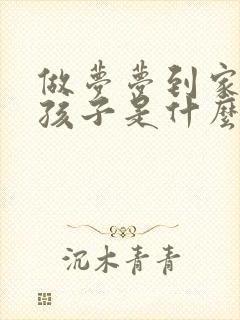 做梦梦到家
孩子是什麼
沉木青青